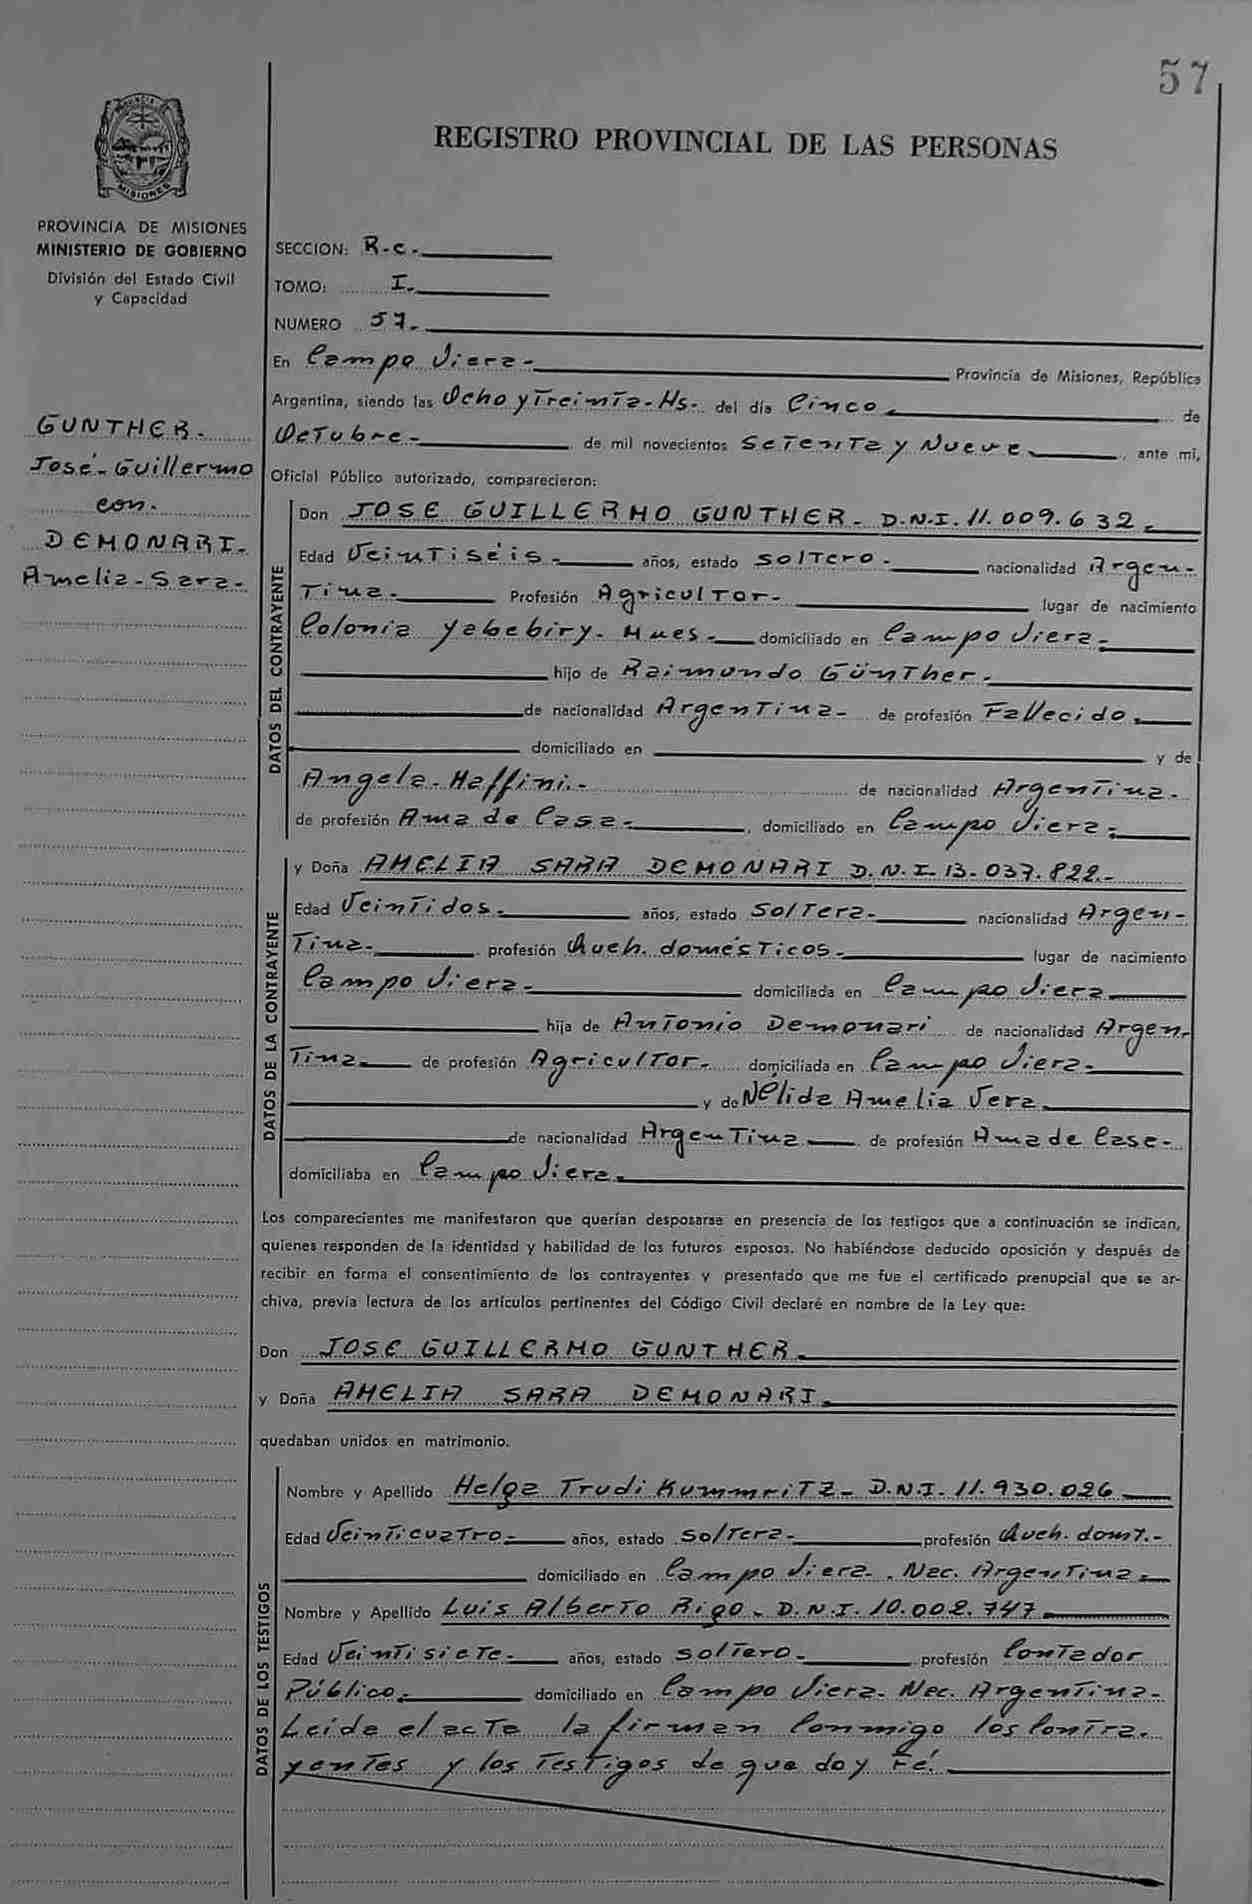 57
PROVINCIA DE
MISIONES
REGISTRO PROVINCIAL DE LAS PERSONAS
PROVINCIA DE MISIONES
MINISTERIO DE GOBIERNO
División del Estado Civil
y Capacidad
GUNTHER.
José-Guillermo
con.
DEMONARI.
Amelia-Sara-
SECCION: R.c.
TOMO: I.
NUMERO 57.
En Campo Viera- Provincia de Misiones, República
Argentina, siendo las Ocho y Treinta-Hs- del día Cinco. de
Octubre- de mil novecientos Setenta y Nueve ante mi,
Oficial Público autorizado, comparecieron:
DATOS DEL CONTRAYENTE
Don JOSE GUILLERMO GUNTHER- D.N.I. 11.009.632.
Edad Veintiséis- años, estado soltero- nacionalidad Argen-
Tina- Profesión Agricultor- lugar de nacimiento
Colonia Yabebiry- Mnes- domiciliado en Campo Viera-
hijo de Raimundo Günther.
de nacionalidad Argentina- de profesión Fallecido.
domiciliado en y de
Angela-Maffini.- de nacionalidad Argentina-
de profesión Ama de Casa- , domiciliado en Campo Viera-
DATOS DE LA CONTRAYENTE
y Doña AMELIA SARA DEMONARI D.N.I. 13.037.822.-
Edad Veintidos- años, estado Soltera- nacionalidad Argen-
Tina- profesión Queh. domésticos- lugar de nacimiento
Campo Viera- domiciliada en Campo Viera
hija de Antonio Demonari de nacionalidad Argen-
Tina- de profesión Agricultor- domiciliada en Campo Viera-
y de Nélida Amelia Vera
de nacionalidad Argentina de profesión Ama de Casa-
domiciliaba en Campo Viera.
Los comparecientes me manifestaron que querían desposarse en presencia de los testigos que a continuación se indican,
quienes responden de la identidad y habilidad de los futuros esposos. No habiéndose deducido oposición y después de
recibir en forma el consentimiento de los contrayentes y presentado que me fue el certificado prenupcial que se ar-
chiva, previa lectura de los artículos pertinentes del Código Civil declaré en nombre de la Ley que:
Don JOSE GUILLERMO GUNTHER.
y Doña AMELIA SARA DEMONARI.
quedaban unidos en matrimonio.
DATOS DE LOS TESTIGOS
Nombre y Apellido Helga Trudi Kummritz- D.N.I. 11.930.026
Edad Veinticuatro- años, estado soltera- profesión Queh. domt.-
domiciliado en Campo Viera-. Nac. Argentina-
Nombre y Apellido Luis Alberto Rigo- D.N.I. 10.002.747
Edad Veintisiete- años, estado soltero- profesión Contador
Público- domiciliado en Campo Viera- Nac. Argentina-
Leida el acta la firman Conmigo los Contra-
yentes y los Testigos de que doy Fé.